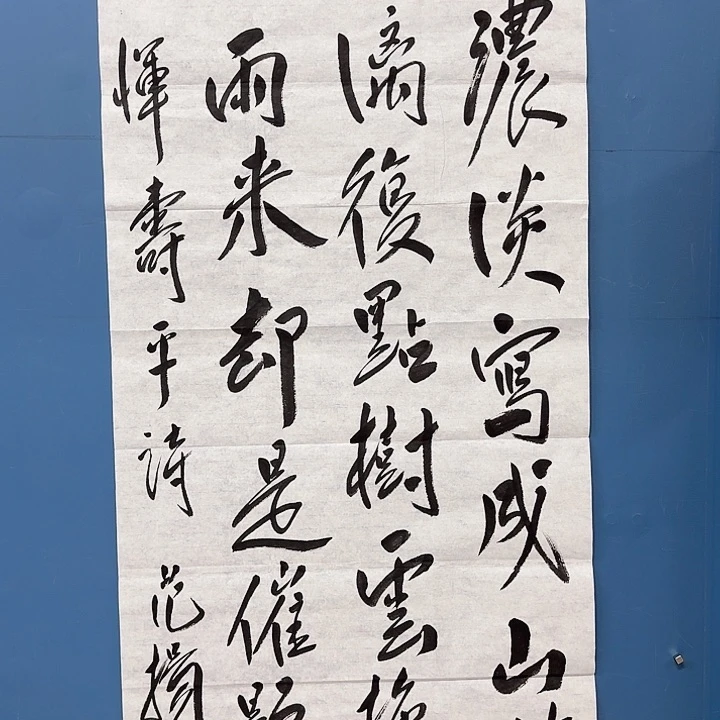 濃淡寫成山
漓復點樹雲
雨来却是催題
惲壽平詩 范